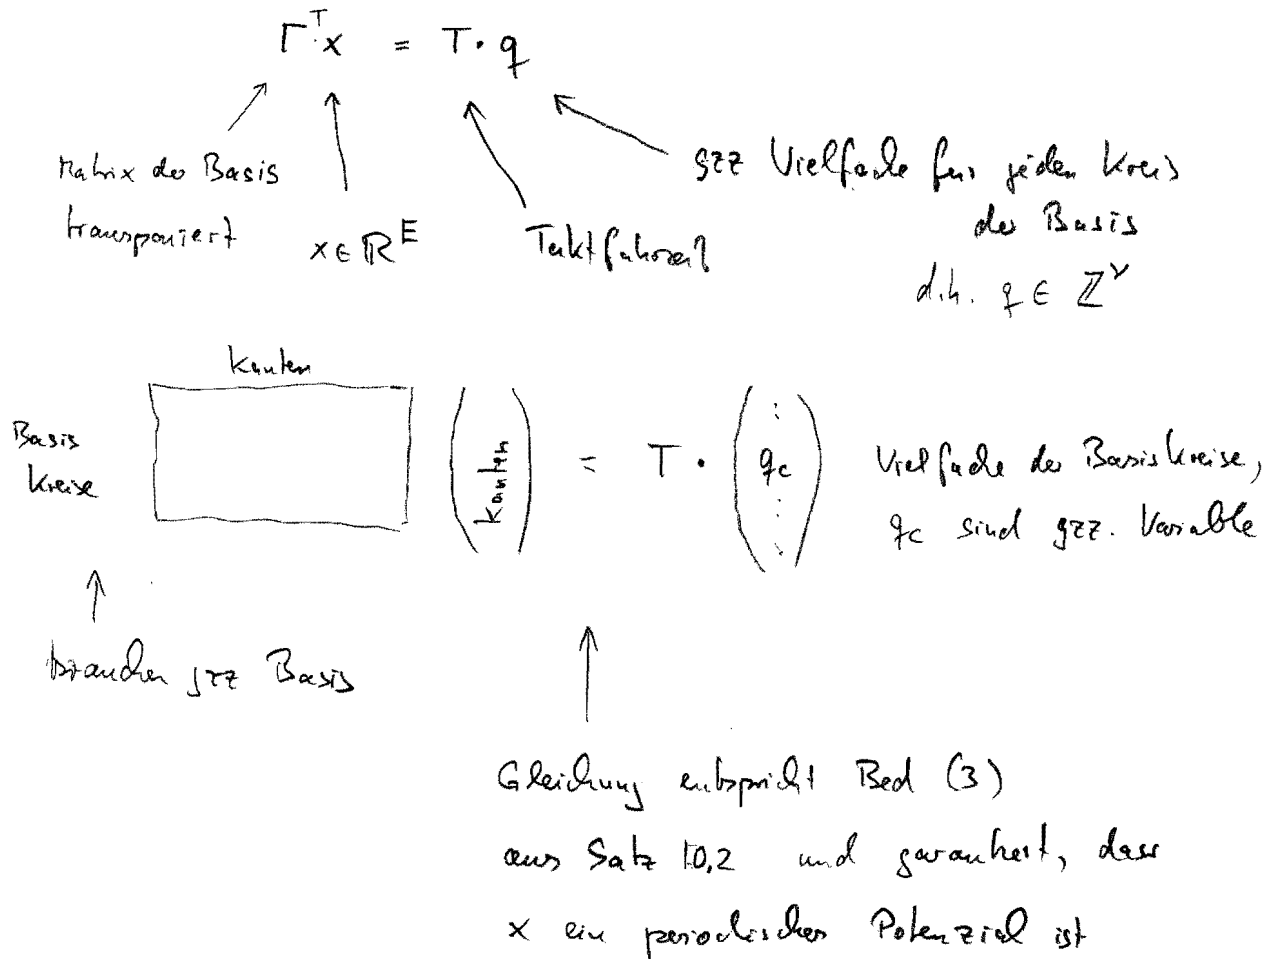 Γᵀx = T · q
Matrix der Basis
transponiert
x ∈ ℝᴱ
Taktfahrzeit
gzz Vielfache für jeden Kreis
der Basis
d.h. q ∈ ℤ^ν
Kanten
Basis
Kreise
Kanten
= T ·
⋮
q_c
⋮
Vielfache der Basiskreise,
q_c sind gzz. Variable
brauchen gzz Basis
Gleichung entspricht Bed (3)
aus Satz 10.2 und garantiert, dass
x ein periodisches Potenzial ist